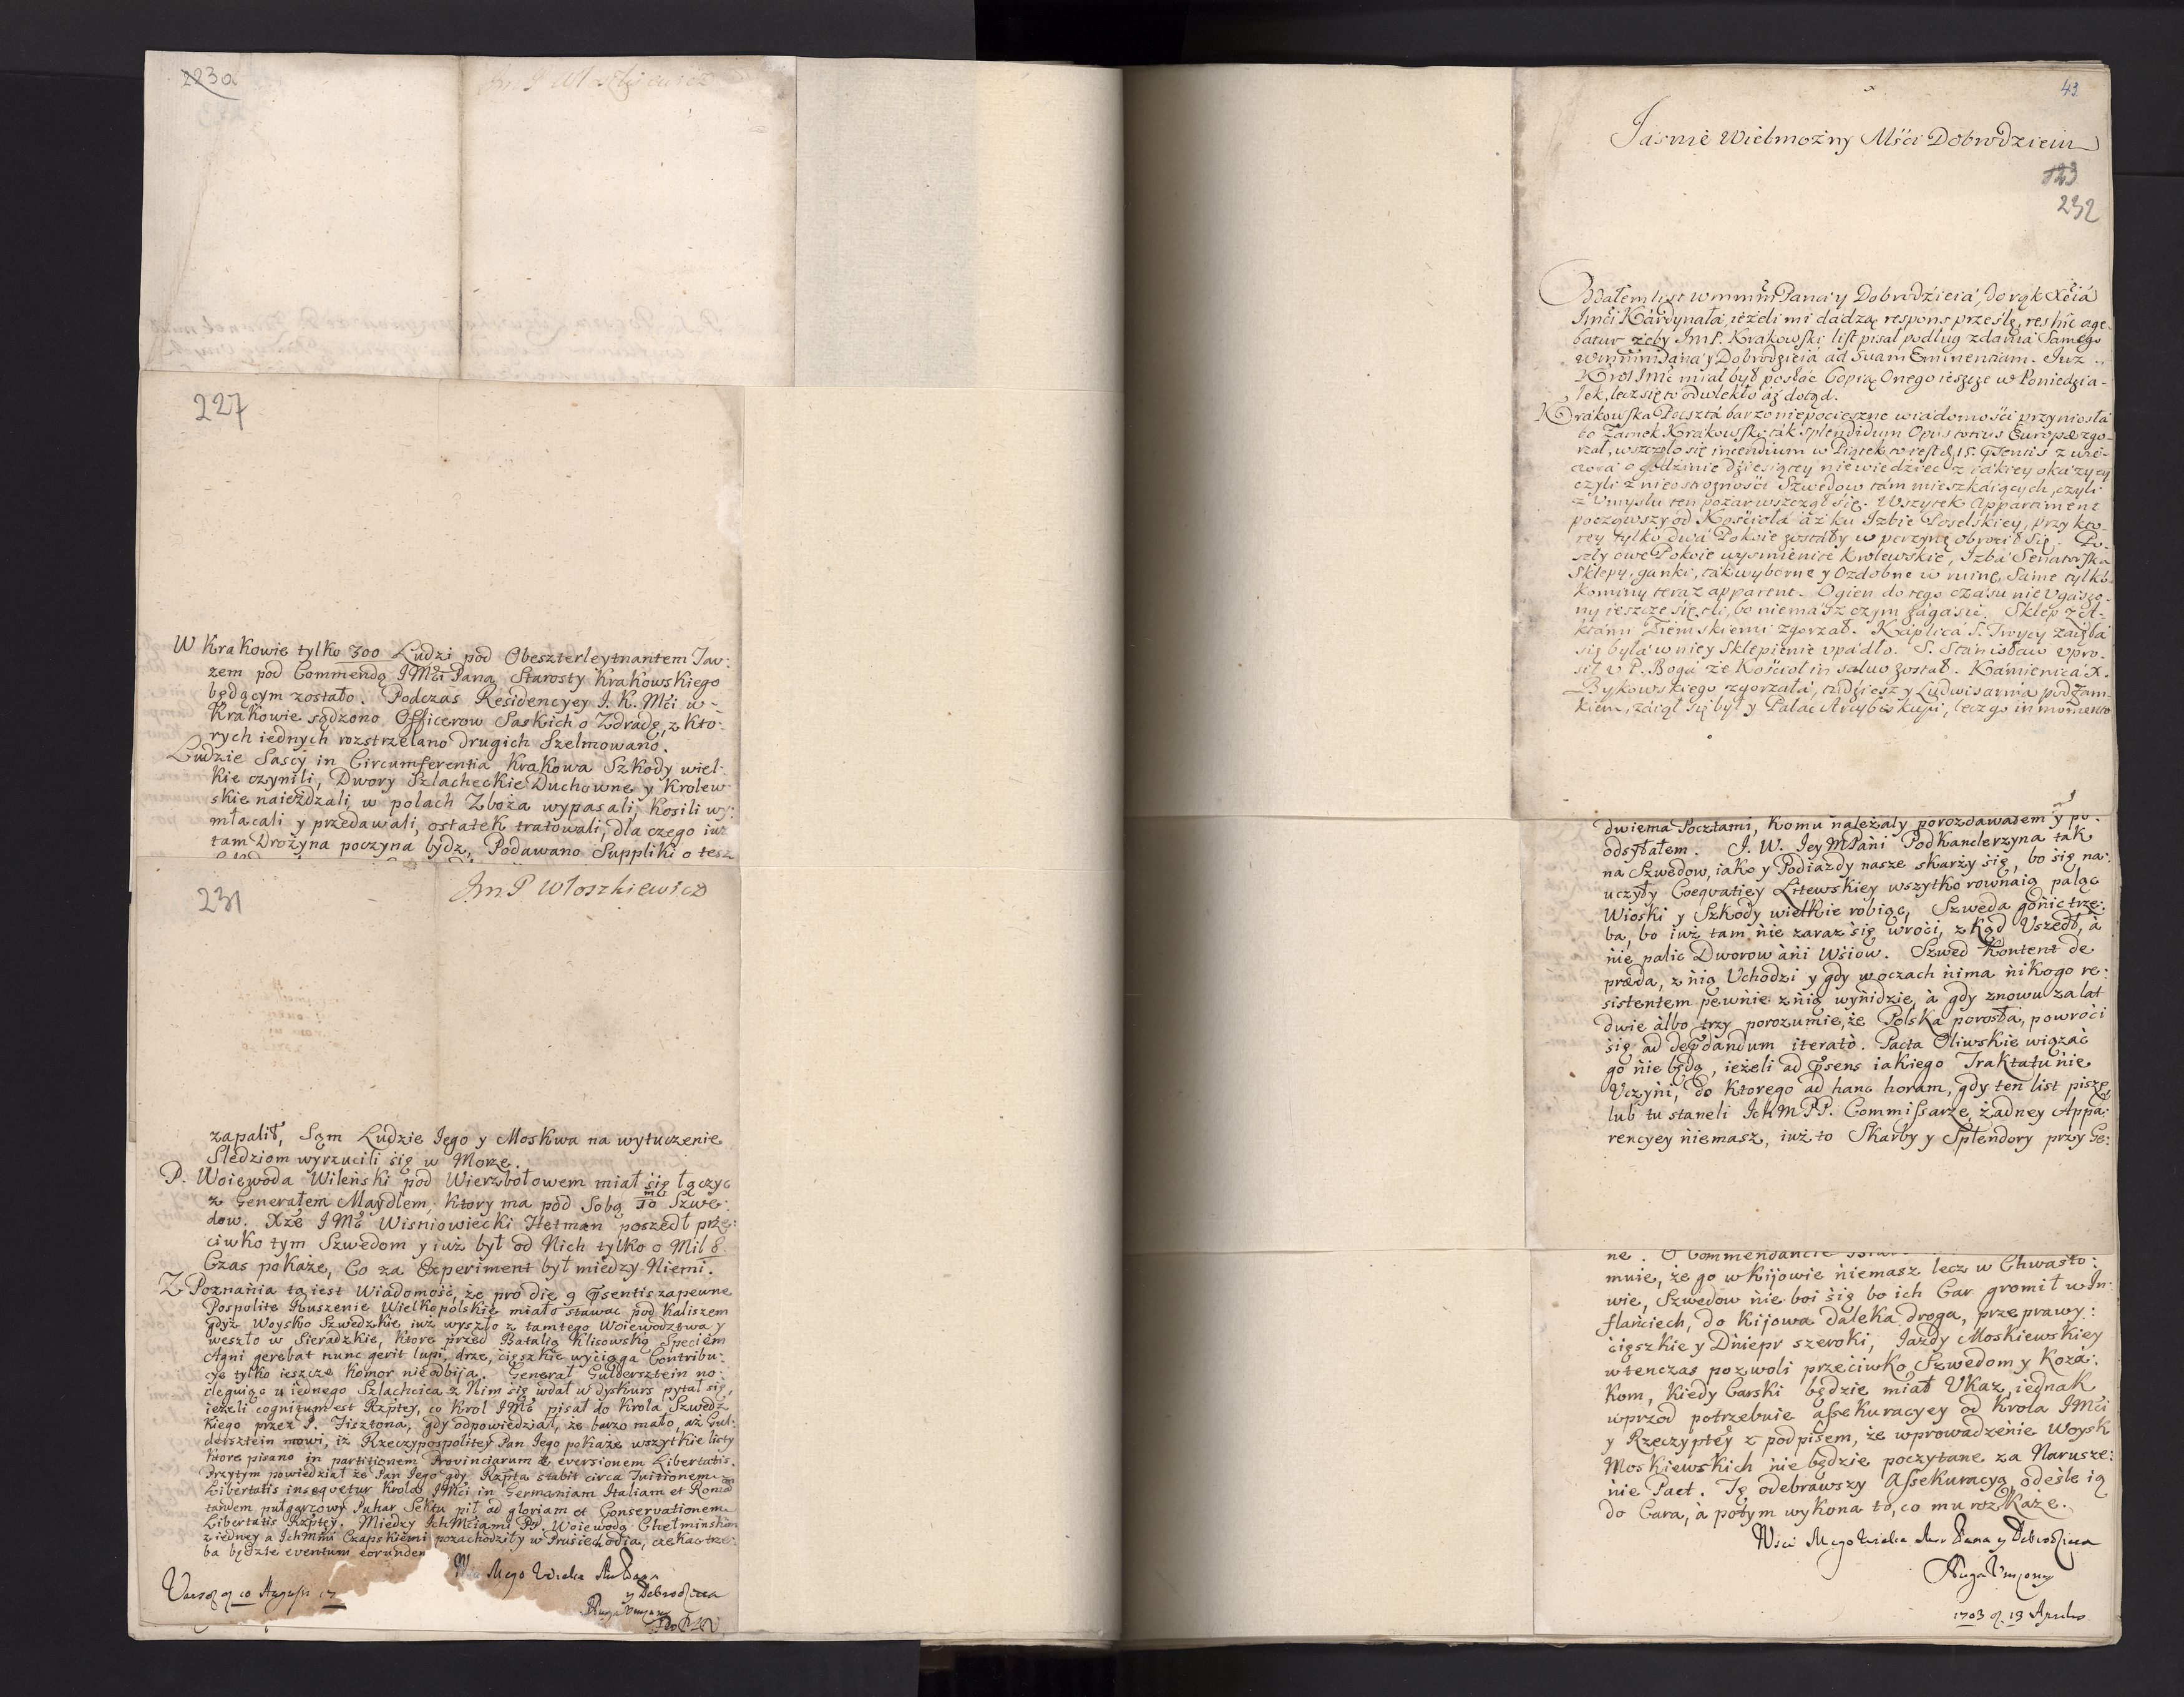 223a
227
W Krakowie tylko 300 Ludzi pod Obeszterleytnantem Jaw:
zem pod Commendą JMći Pana Starosty Krakowskiego
będącym zostało. Podczas Residencyey J. K. Mći w
Krakowie sądzono Officerow Saskich o Zdradę, z kto:
rych iednych rozstrzelano drugich Szelmowano.
Ludzie Sascy in Circumferentia Krakowa Szkody wiel:
kie czynili, Dwory Szlacheckie Duchowne y Krolew
skie naieżdzali, w polach Zboża wypasali, Kosili wy:
młacali y przedawali, ostatek tratowali, dla czego iuż
tam Drożyna poczyna bydz, Podawano Suppliki o tesz
231
Jm P Włoszkiewicz
zapalił, Sąm Ludzie Jego y Moskwa na wytuczenie
Sledziom wyrzucili się w Morze.
P. Woiewoda Wileński pod Wierzbołowem miał się łączyc
z Generałem Maydlem, ktory ma pod Sobą 10 Szwe:
dow. Xże JMć Wisniowiecki Hetman poszedł prze:
ciwko tym Szwedom y iuż był od Nich tylko o Mil 8.
Czas pokaże, Co za Experiment był między Niemi.
Z Poznania ta iest Wiadomość, że pro die 9 psentis zapewne
Pospolite Ruszenie Wielkopolskie miało stawac pod Kaliszem
gdyż Woysko Szwedzkie iuż wyszło z tamtego Woiewodztwa y
weszło w Sieradzkie, ktore przed Batalią Klisowską Speciem
Agni gerebat nunc gerit lupi, drze, cięszkie wyciąga Contribu:
cye tylko ieszcze Komor nieodbija. Generał Guldersztein no:
cleguiąc u iednego Szlachcica z Nim się wdał w dyskurs pytał się,
ieżeli cognitum est Rzptey, co Krol JMć pisał do Krola Szwedz
kiego przez P. Fisztona, gdy odpowiedział, że barzo mało, aż Gul:
dersztein mowi, iż Rzeczypospolitey Pan Jego pokaże wszytkie listy
ktore pisano in partitionem Provinciarum & eversionem Libertatis.
Przytym powiedział że Pan Jego gdy Rzpta stabit circa Tuitionem
Libertatis insequetur Krola JMći in Germaniam Italiam et Romā
tandem pułgarcowy Puhar Sektu pił ad gloriam et Conservationem
Libertatis Rzptey. Między Ich Mściami PP. Woiewodą Chełminskim
z iedney a Ich Mśmi Czapskiemi pozachodziły w Prusiech odia, czekac trze:
ba będzie eventum eorunden
Mego Wielce
y Dobrodzieia
43
Jasnie Wielmożny Mści Dobrodzieiu
123
232
Oddałem list wmmm Pana y Dobrodzieia, do rąk Xcia
Jmći Kardynała, ieżeli mi dadzą respons prześlę, res hic age:
batur żeby Jm P. Krakowski list pisał podług zdania Samego
wmmm Pana y Dobrodzieia ad Suam Eminentiam. Iuż
Krol Jmć miał był posłac Copią Onego ieszcze w Poniedzia:
łek, lecz się to odwlekło aż dotąd.
Krakowska Poczta barzo niepocieszne wiadomości przyniosła
bo Zamek Krakowski tak Splendidum Opus totius Europæ zgo:
rzał, wszczęło się incendium w Piątek to iest d. 15 psentis z wie:
czora o godzinie dziesiątey niewiedziec z iakiey okazyey
czyli z nieostrożności Szwedow tam mieszkaiących, czyli
z Vmysłu ten pożar wszczął się. Wszytek Appartiment
począwszy od Kościoła aż ku Izbie Poselskiey, przy kto:
rey tylko dwa Pokoie zostały w perzynę obrocił się. Po:
szły owe Pokoie wysmienite Krolewskie, Izba Senatorska
Sklepy, ganki, tak wyborne y Ozdobne w ruinę, Same tylko
kominy teraz apparent. Ogien do tego czasu nie Vgaszo:
ny ieszcze się tli, bo niemasz czym zagasic. Sklep z Ak:
tami Ziemskiemi zgorzał. Kaplica S. Troycy zaięła
się była w niey Sklepienie vpadło. S. Stanisław vpro:
sił v P. Boga że Kościoł in salvo został. Kamienica X.
Bykowskiego zgorzała, tudziesz y Ludwisarnia pod Zam:
kiem, zaiął się był y Pałac Arcybiskupi, lecz go in momento
dwiema Pocztami, Komu należały porozdawałem y po:
odsyłałem. J. W. Jey MPani Podkanclerzyna tak
na Szwedow, iako y Podiazdy nasze skarży się, bo się na:
uczyły Coequatiey Litewskiey wszytko rownaią paląc
Wioski y Szkody wielkie robiąc, Szweda gonic trze:
ba, bo iuż tam nie zaraz się wroci, z kąd Vszedł, à
nie palic Dworow ani Wsiow. Szwed Kontent de
præda, z nią Vchodzi y gdy w oczach nima nikogo re:
sistentem pewnie z nią wynidzie, à gdy znowu za lat
dwie albo trzy porozumie, że Polska porosła, powroci
się ad depdandum iterato. Pacta Oliwskie wiązac
go nie będą, ieżeli ad psens iakiego Traktatu nie
Vczyni, do ktorego ad hanc horam, gdy ten list piszę,
lub tu staneli Ich M PP. Commissarze, żadney Appa:
rencyey niemasz, iuż to Skarby y Splendory przy Ge:
ne. O Commendancie
muie, że go w Kijowie niemasz lecz w Chwasto:
wie, Szwedow nie boi się bo ich Car gromił w In:
flanciech, do Kijowa daleka droga, przeprawy
cięszkie y Dniepr szeroki, Jazdy Moskiewskiey
wtenczas pozwoli przeciwko Szwedom y Koza:
kom, kiedy Carski będzie miał Vkaz, iednak
wprzod potrzebuie assekuracyey od Krola JMći
y Rzeczyptey z podpisem, że wprowadzenie Woysk
Moskiewskich nie będzie poczytane za Narusze:
nie Pact. Tę odebrawszy Assekuracyą odeśle ią
do Cara, à potym wykona to, co mu rozkaże.
Wści Mego Wielce Mci Pana y Dobrodzieia
Sługa Vniżony
1703 d. 13 Aprilis